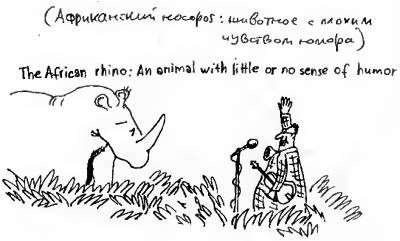 (Африканский носорог: животное с плохим
чувством юмора)
The African rhino: An animal with little or no sense of humor